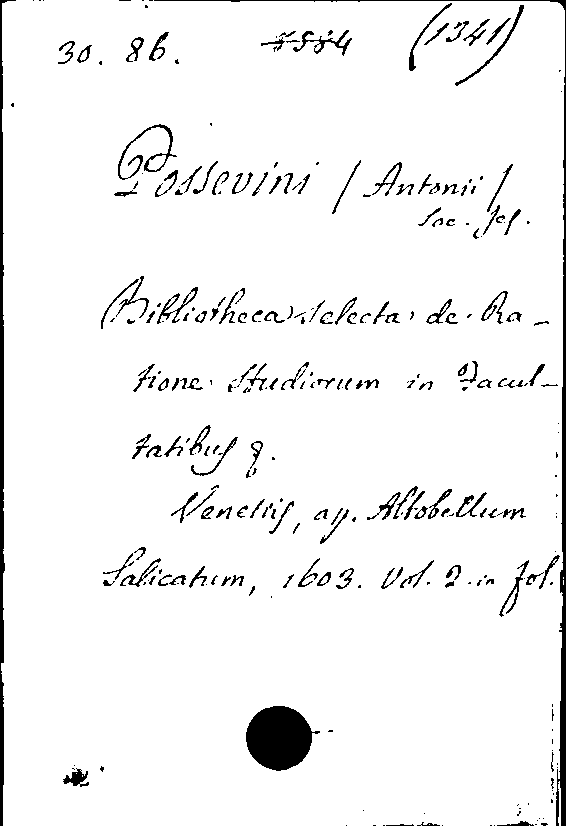 30. 86. 5584 (1341)
Possevini / Antonii /
Soc. Jes.
Bibliotheca selecta de Ra-
tione Studiorum in Facul-
tatibus
Venetiis, ap. Altobellum
Salicatum, 1603. Vol. 2 in fol.